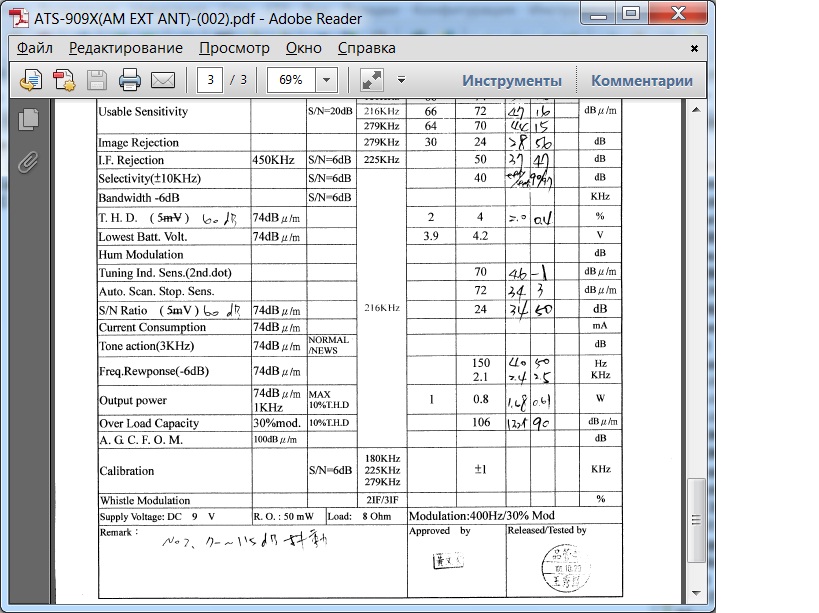 ATS-909X(AM EXT ANT)-(002).pdf - Adobe Reader
Файл Редактирование Просмотр Окно Справка
3 / 3 69% Инструменты Комментарии
Usable Sensitivity S/N=20dB 216KHz 66 72 47 16 dBμ/m
279KHz 64 70 44 15
Image Rejection 279KHz 30 24 50 dB
I.F. Rejection 450KHz S/N=6dB 225KHz 50 37 47 dB
Selectivity(±10KHz) S/N=6dB 40 dB
Bandwidth -6dB S/N=6dB KHz
T. H. D. (5mV) 60 dB 74dBμ/m 2 4 2.0 0.4 %
Lowest Batt. Volt. 74dBμ/m 3.9 4.2 V
Hum Modulation dB
Tuning Ind. Sens.(2nd.dot) 70 46 -1 dBμ/m
Auto. Scan. Stop. Sens. 72 34 3 dBμ/m
S/N Ratio (5mV) 60 dB 74dBμ/m 216KHz 24 34 50 dB
Current Consumption 74dBμ/m mA
Tone action(3KHz) 74dBμ/m NORMAL /NEWS dB
Freq.Rewponse(-6dB) 74dBμ/m 150 40 50 Hz
2.1 2.4 2.5 KHz
Output power 74dBμ/m 1KHz MAX 10%T.H.D 1 0.8 1.68 0.61 W
Over Load Capacity 30%mod. 10%T.H.D 106 90 dBμ/m
A. G. C. F. O. M. 100dBμ/m dB
Calibration S/N=6dB 180KHz 225KHz 279KHz ±1 KHz
Whistle Modulation 2IF/3IF %
Supply Voltage: DC 9 V R. O. : 50 mW Load: 8 Ohm Modulation:400Hz/30% Mod
Remark : Approved by Released/Tested by